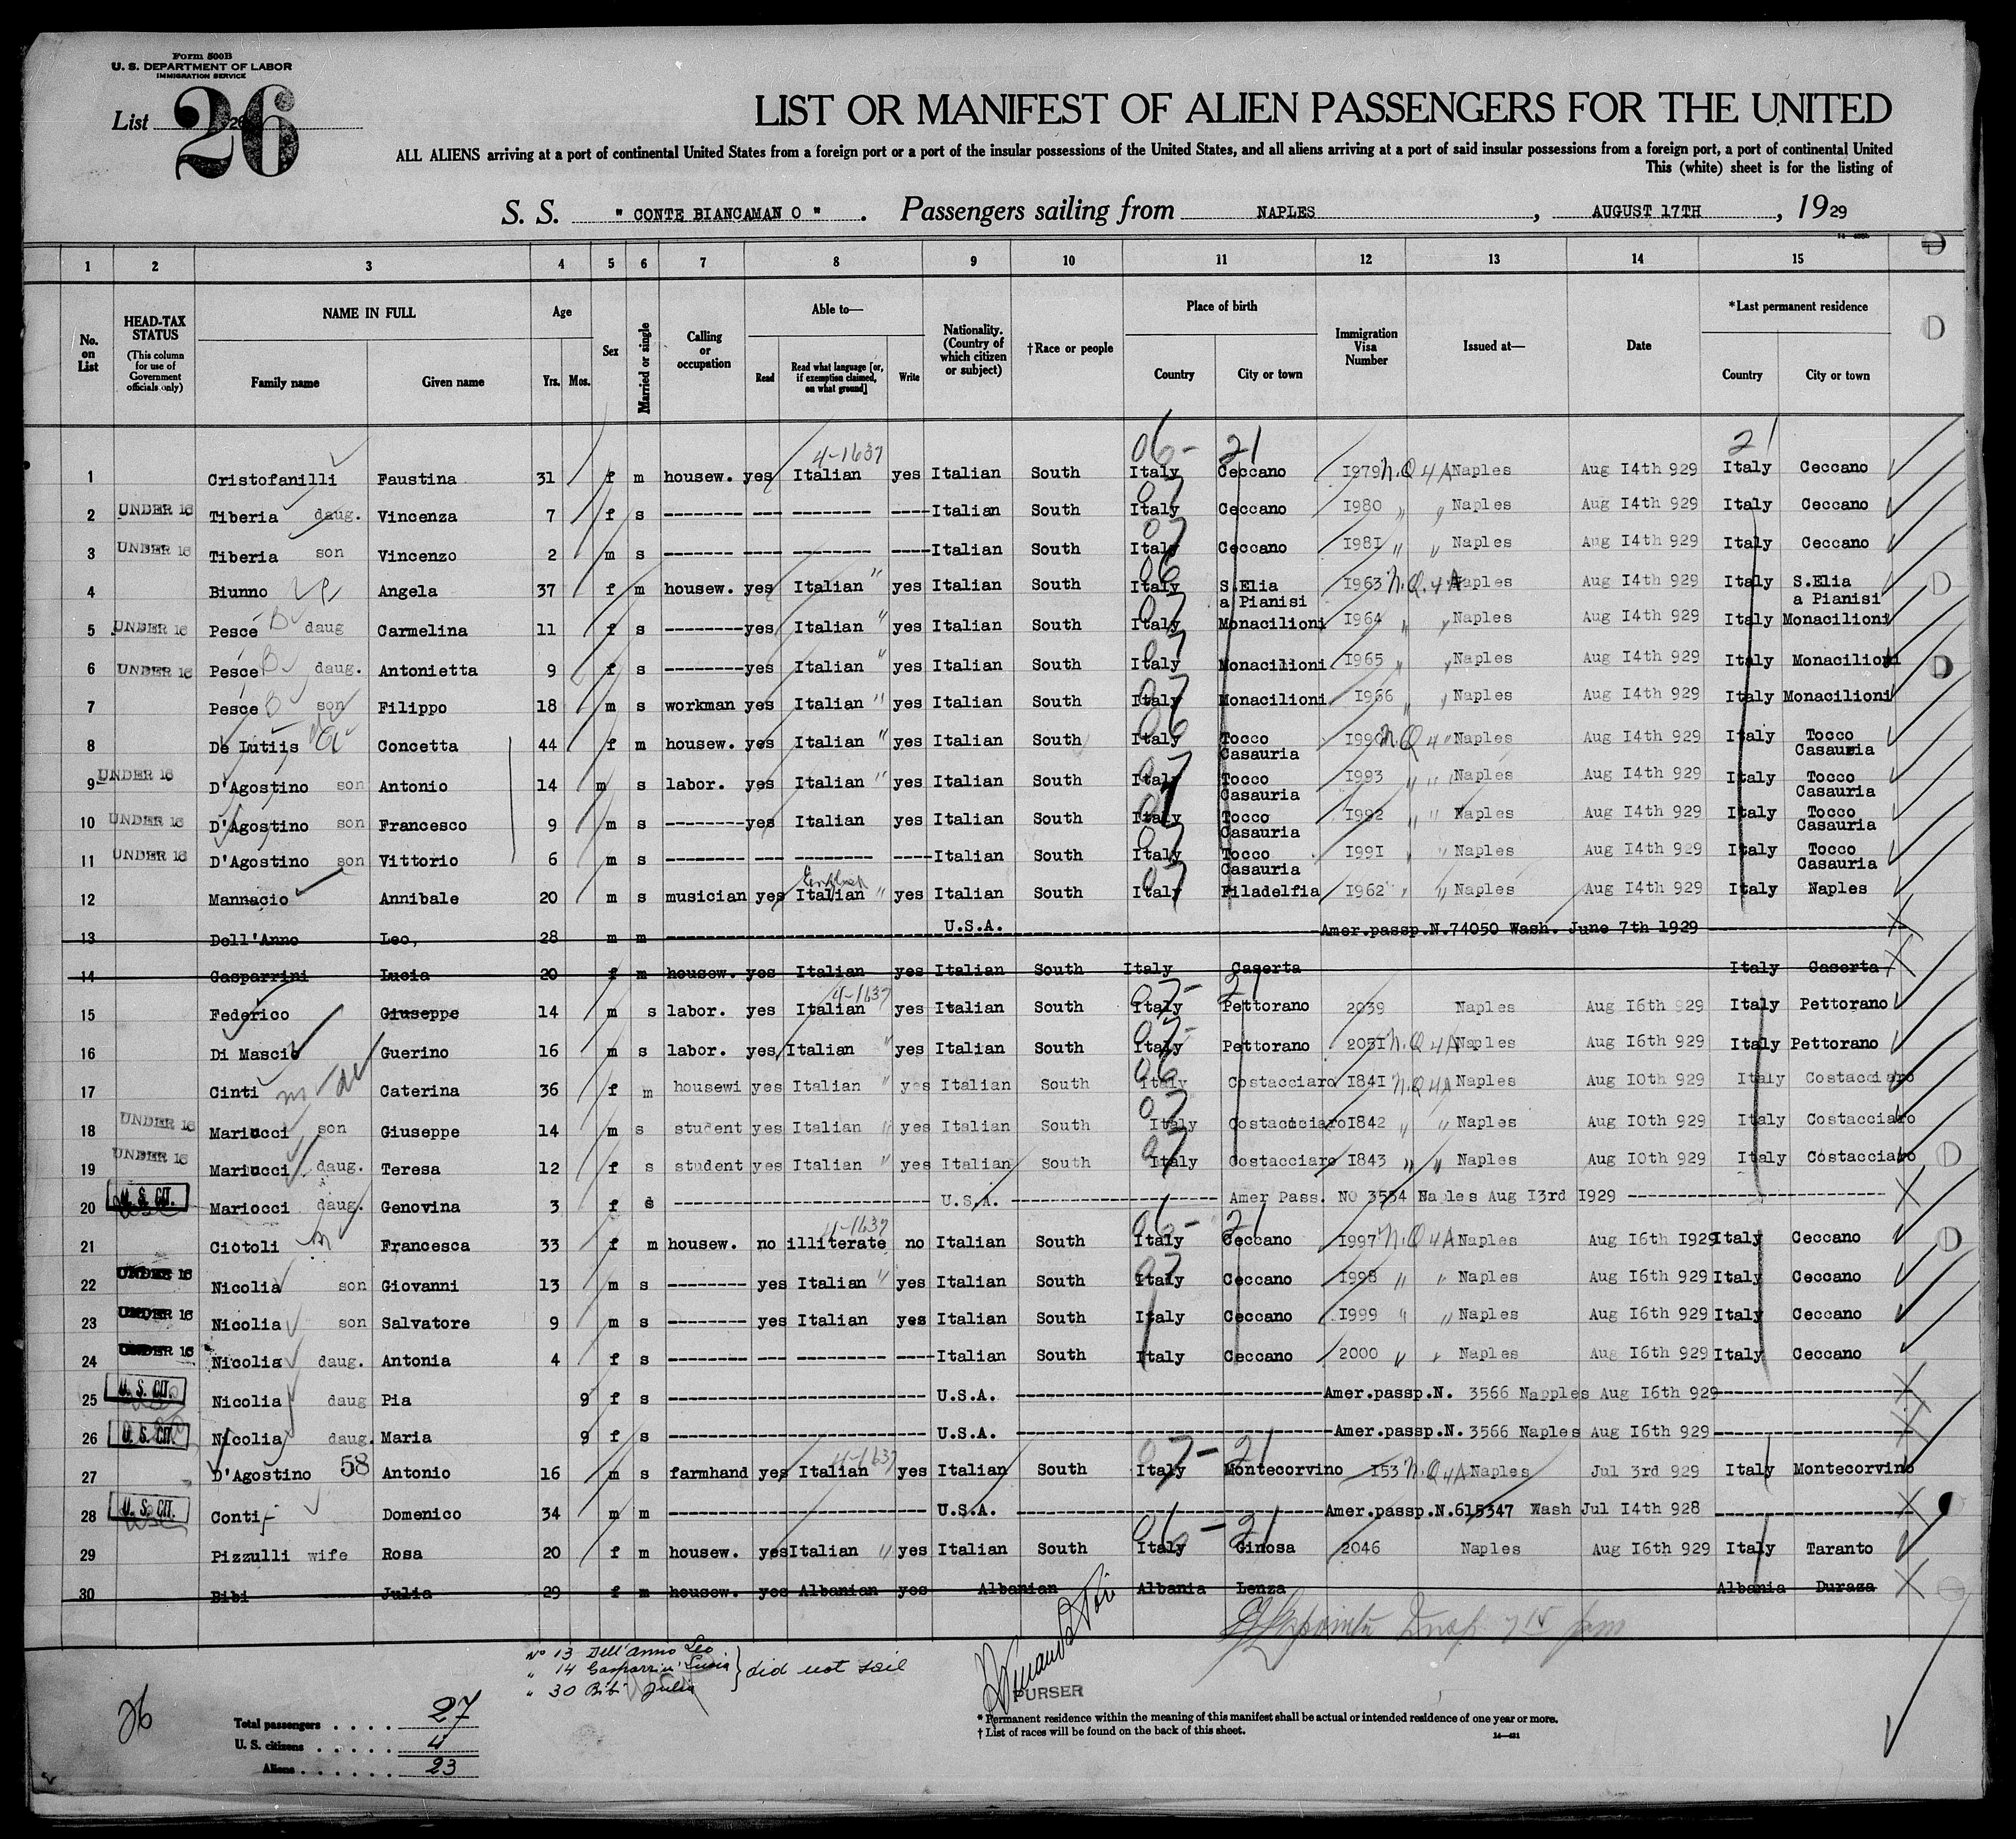 Form 500B
U. S. DEPARTMENT OF LABOR
IMMIGRATION SERVICE
List 26
26
LIST OR MANIFEST OF ALIEN PASSENGERS FOR THE UNITED
ALL ALIENS arriving at a port of continental United States from a foreign port or a port of the insular possessions of the United States, and all aliens arriving at a port of said insular possessions from a foreign port, a port of continental United
This (white) sheet is for the listing of
S. S. " CONTE BIANCAMAN O " . Passengers sailing from NAPLES , AUGUST 17TH , 1929
1 2 3 4 5 6 7 8 9 10 11 12 13 14 15
No. on List
HEAD-TAX STATUS (This column for use of Government officials only)
NAME IN FULL Family name Given name
Age Yrs. Mos.
Sex
Married or single
Calling or occupation
Able to— Read Read what language [or, if exemption claimed, on what ground] Write
Nationality. (Country of which citizen or subject)
†Race or people
Place of birth Country City or town
Immigration Visa Number
Issued at—
Date
*Last permanent residence Country City or town
06- 21 21
4-1637
1 Cristofanilli Faustina 31 f m housew. yes Italian yes Italian South Italy Ceccano I979 N.Q 4 A Naples Aug I4th 929 Italy Ceccano
2 UNDER 16 Tiberia daug. Vincenza 7 f s -------- --- -------- ---- Italian South 07 Italy Ceccano I980 " " Naples Aug I4th 929 Italy Ceccano
3 UNDER 16 Tiberia son Vincenzo 2 m s ------- ---- -------- ---- Italian South 07 Italy Ceccano I98I " " Naples Aug I4th 929 Italy Ceccano
4 Biunno Angela 37 f m housew. yes Italian " yes Italian South 06 Italy S.Elia a Pianisi I963 N.Q. 4 A Naples Aug I4th 929 Italy S.Elia a Pianisi
5 UNDER 16 Pesce B daug Carmelina 11 f s -------- yes Italian " yes Italian South 07 Italy Monacilioni I964 " " Naples Aug I4th 929 Italy Monacilioni
6 UNDER 16 Pesce B daug. Antonietta 9 f s -------- yes Italian " yes Italian South 07 Italy Monacilioni I965 " " Naples Aug I4th 929 Italy Monacilioni
7 Pesce B son Filippo 18 m s workman yes Italian " yes Italian South 07 Italy Monacilioni I966 " " Naples Aug I4th 929 Italy Monacilioni
8 De Lutiis Concetta 44 f m housew. yes Italian " yes Italian South 06 Italy Tocco Casauria I990 N.Q 4 " Naples Aug I4th 929 Italy Tocco Casauria
9 UNDER 16 D'Agostino son Antonio 14 m s labor. yes Italian " yes Italian South 07 Italy Tocco Casauria I993 " " " Naples Aug I4th 929 Italy Tocco Casauria
10 UNDER 16 D'Agostino son Francesco 9 m s -------- yes Italian yes Italian South 07 Italy Tocco Casauria I992 " " Naples Aug I4th 929 Italy Tocco Casauria
11 UNDER 16 D'Agostino son Vittorio 6 m s -------- --- -------- ---- Italian South 07 Italy Tocco Casauria I99I " " Naples Aug I4th 929 Italy Tocco Casauria
12 Mannacio Annibale 20 m s musician yes Italian " yes Italian South 07 Italy Filadelfia I962 " " Naples Aug I4th 929 Italy Naples
13 Dell'Anno Leo, 28 m m U.S.A. Amer.passp.N.74050 Wash. June 7th 1929
14 Gasparrini Lucia 20 f m housew. yes Italian yes Italian South Italy Caserta Italy Caserta
4-1637 07- 21
15 Federico Giuseppe 14 m s labor. yes Italian yes Italian South Italy Pettorano 2039 Naples Aug I6th 929 Italy Pettorano
16 Di Mascio Guerino 16 m s labor. yes Italian " yes Italian South 07- Italy Pettorano 205I N.Q 4 A Naples Aug I6th 929 Italy Pettorano
17 Cinti Caterina 36 f m housewi yes Italian " yes Italian South 06 Italy Costacciaro I84I N.Q 4 A Naples Aug IOth 929 Italy Costacciaro
18 UNDER 16 Mariucci son Giuseppe 14 m s student yes Italian " yes Italian South 07 Italy Costacciaro I842 " " Naples Aug IOth 929 Italy Costacciaro
19 UNDER 16 Mariucci daug. Teresa 12 f s student yes Italian " yes Italian South 07 Italy Costacciaro I843 " " Naples Aug IOth 929 Italy Costacciaro
20 U. S. CIT. Mariocci daug. Genovina 3 f s U.S.A. Amer Pass. NO 3554 Naples Aug I3rd I929
4-1637 06- 21
21 Ciotoli m Francesca 33 f m housew. no illiterate no Italian South Italy Ceccano I997 N.Q 4 A Naples Aug I6th I929 Italy Ceccano
22 UNDER 16 Nicolia son Giovanni 13 m s -------- yes Italian " yes Italian South 07 Italy Ceccano I998 " " Naples Aug I6th 929 Italy Ceccano
23 UNDER 16 Nicolia son Salvatore 9 m s -------- yes Italian yes Italian South Italy Ceccano I999 " " Naples Aug I6th 929 Italy Ceccano
24 UNDER 16 Nicolia daug. Antonia 4 f s -------- --- --------- ---- Italian South Italy Ceccano 2000 " " Naples Aug I6th 929 Italy Ceccano
25 U. S. CIT. Nicolia daug Pia 9 f s U.S.A. Amer.passp.N. 3566 Napples Aug I6th 929
26 U. S. CIT. Nicolia daug. Maria 9 f s U.S.A. Amer.passp.N. 3566 Naples Aug I6th 929
4-1637 07- 21
27 D'Agostino 58 Antonio 16 m s farmhand yes Italian yes Italian South Italy Montecorvino I53 N.Q 4 A Naples Jul 3rd 929 Italy Montecorvino
28 U. S. CIT. Conti Domenico 34 m m U.S.A. Amer.passp.N.615347 Wash Jul I4th 928
06- 21
29 Pizzulli wife Rosa 20 f m housew. yes Italian " yes Italian South Italy Ginosa 2046 Naples Aug I6th 929 Italy Taranto
30 Bibi Julia 29 f m housew. yes Albanian yes Albanian Albania Lenza Albania Duraza
No 13 Dell'anno Leo
" 14 Gasparrini Lucia } did not sail
" 30 Bibi Julia
PURSER
26
Total passengers . . . . 27
U. S. citizens . . . . . 4
Aliens . . . . . . 23
* Permanent residence within the meaning of this manifest shall be actual or intended residence of one year or more.
† List of races will be found on the back of this sheet.
14—421